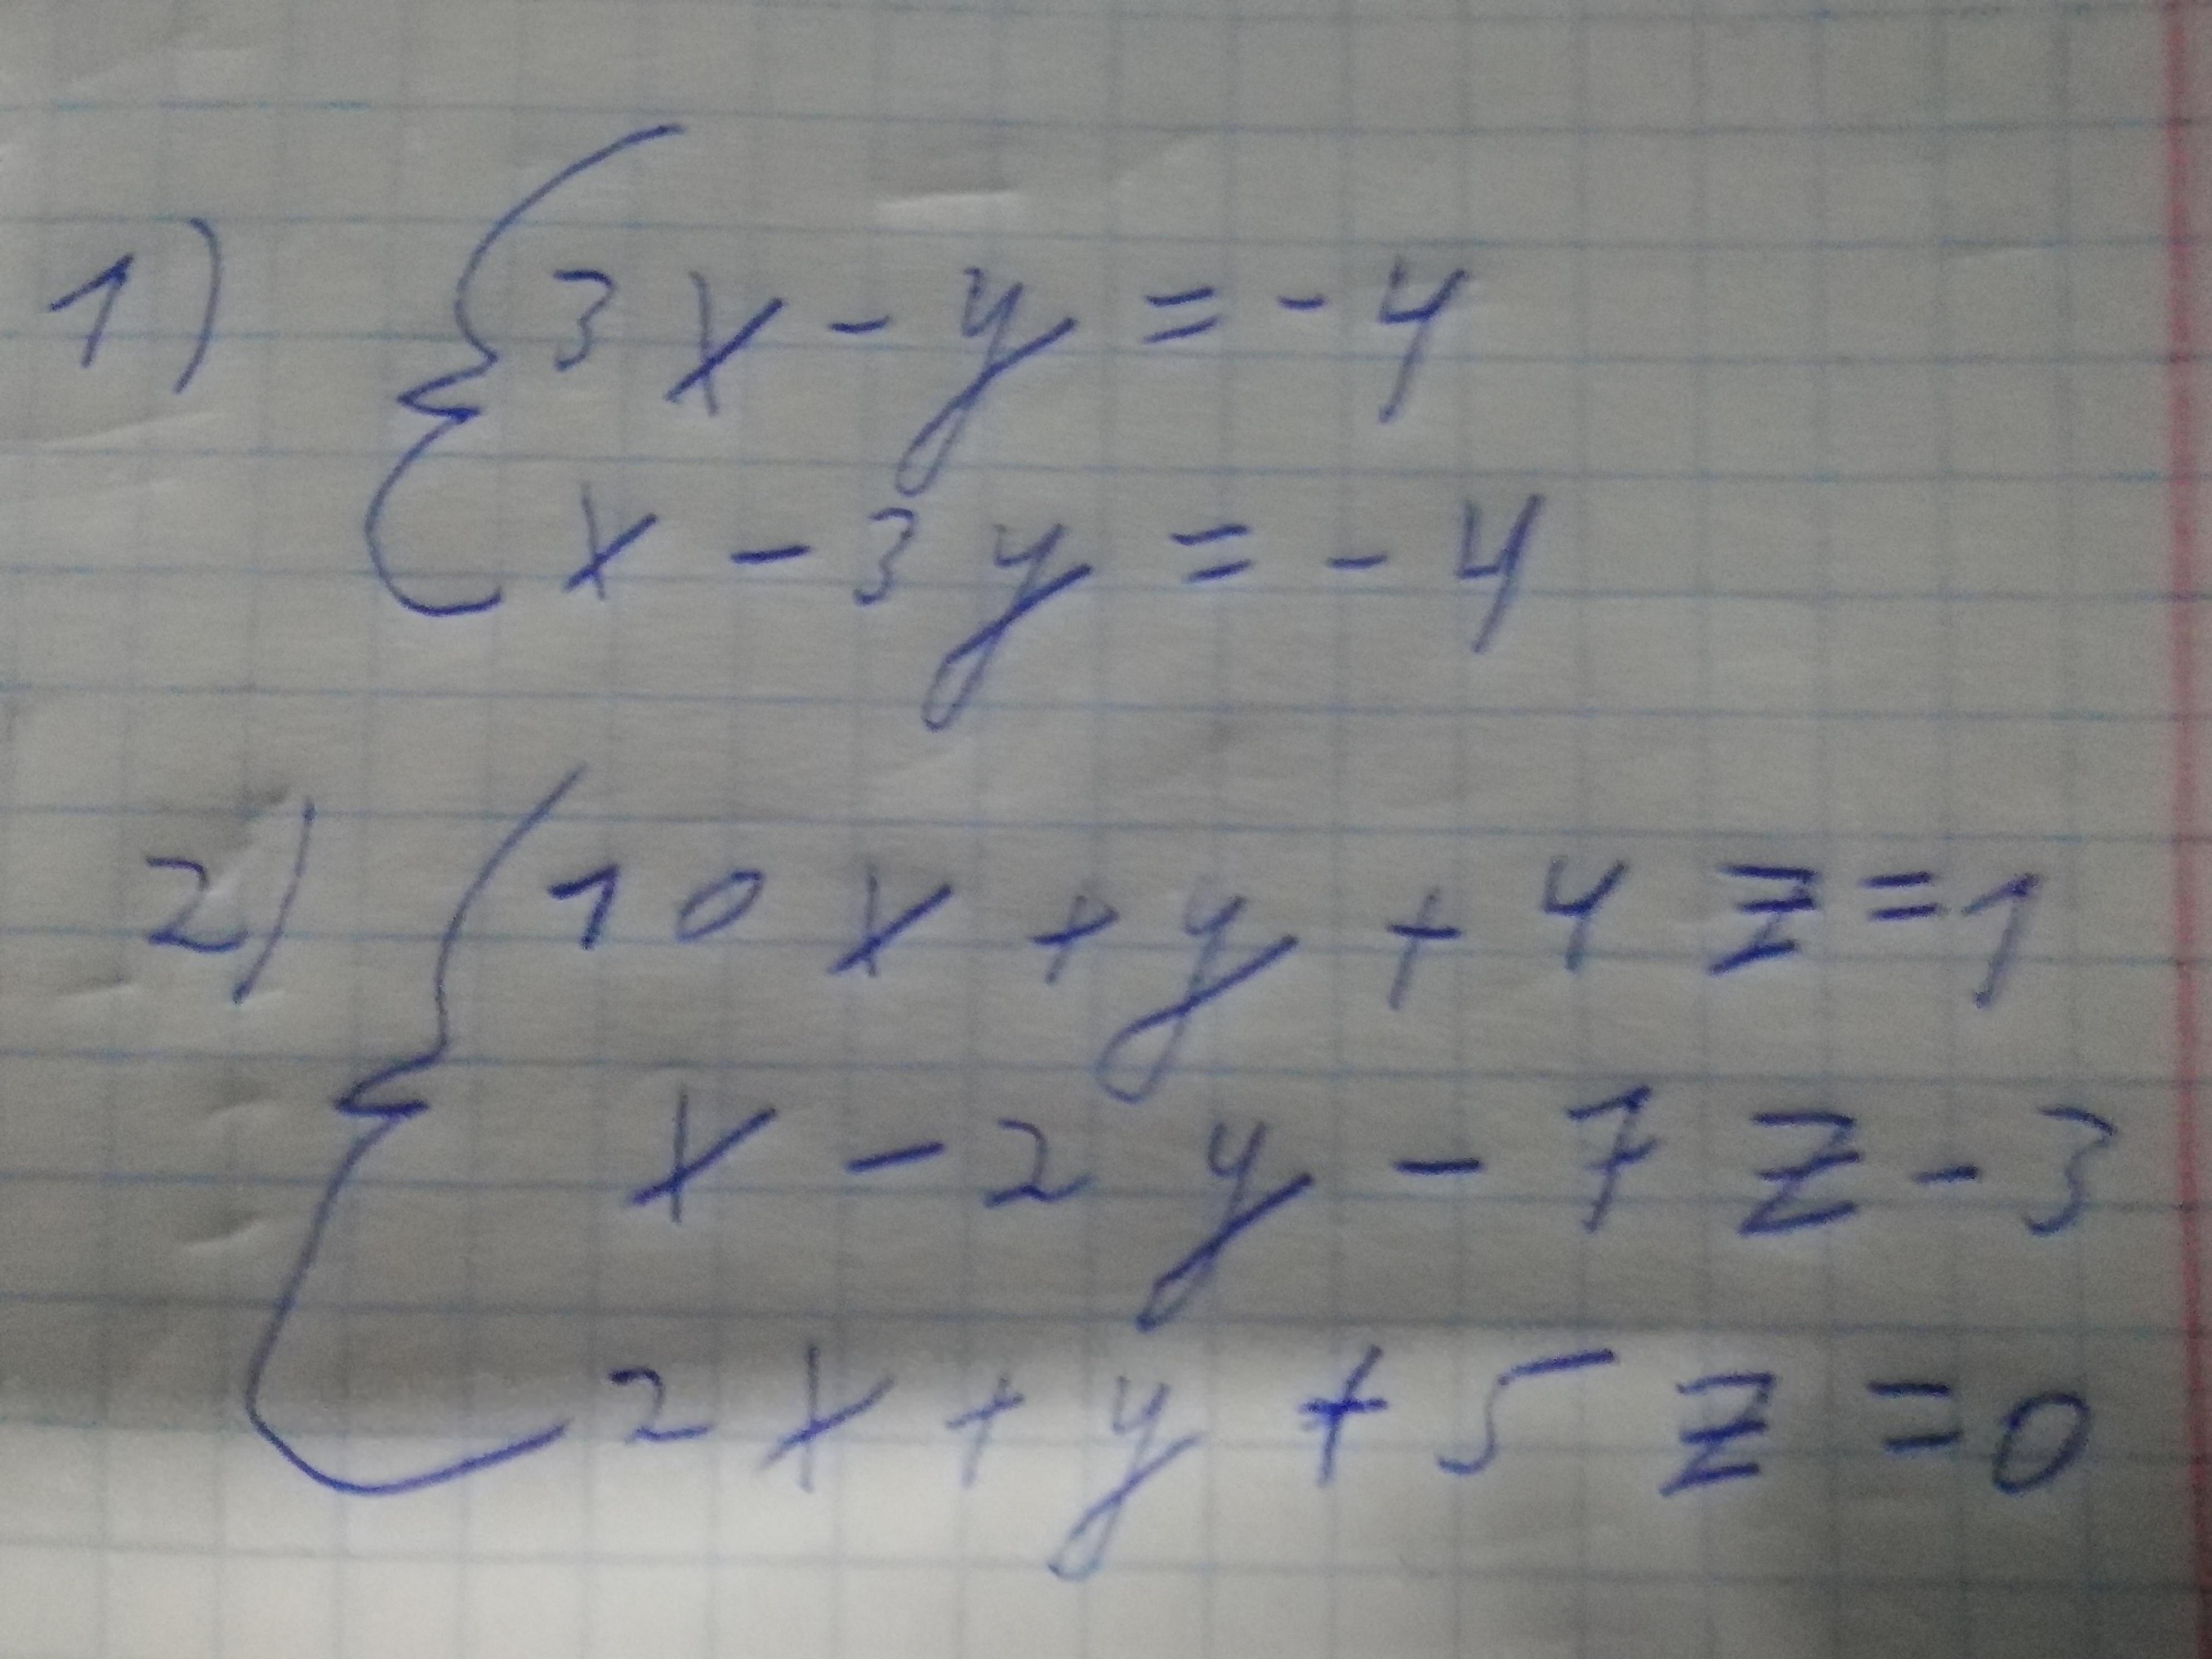 1) { 3x - y = - 4
x - 3y = - 4
2) { 10x + y + 4z = 1
x - 2y - 7z - 3
2x + y + 5z = 0